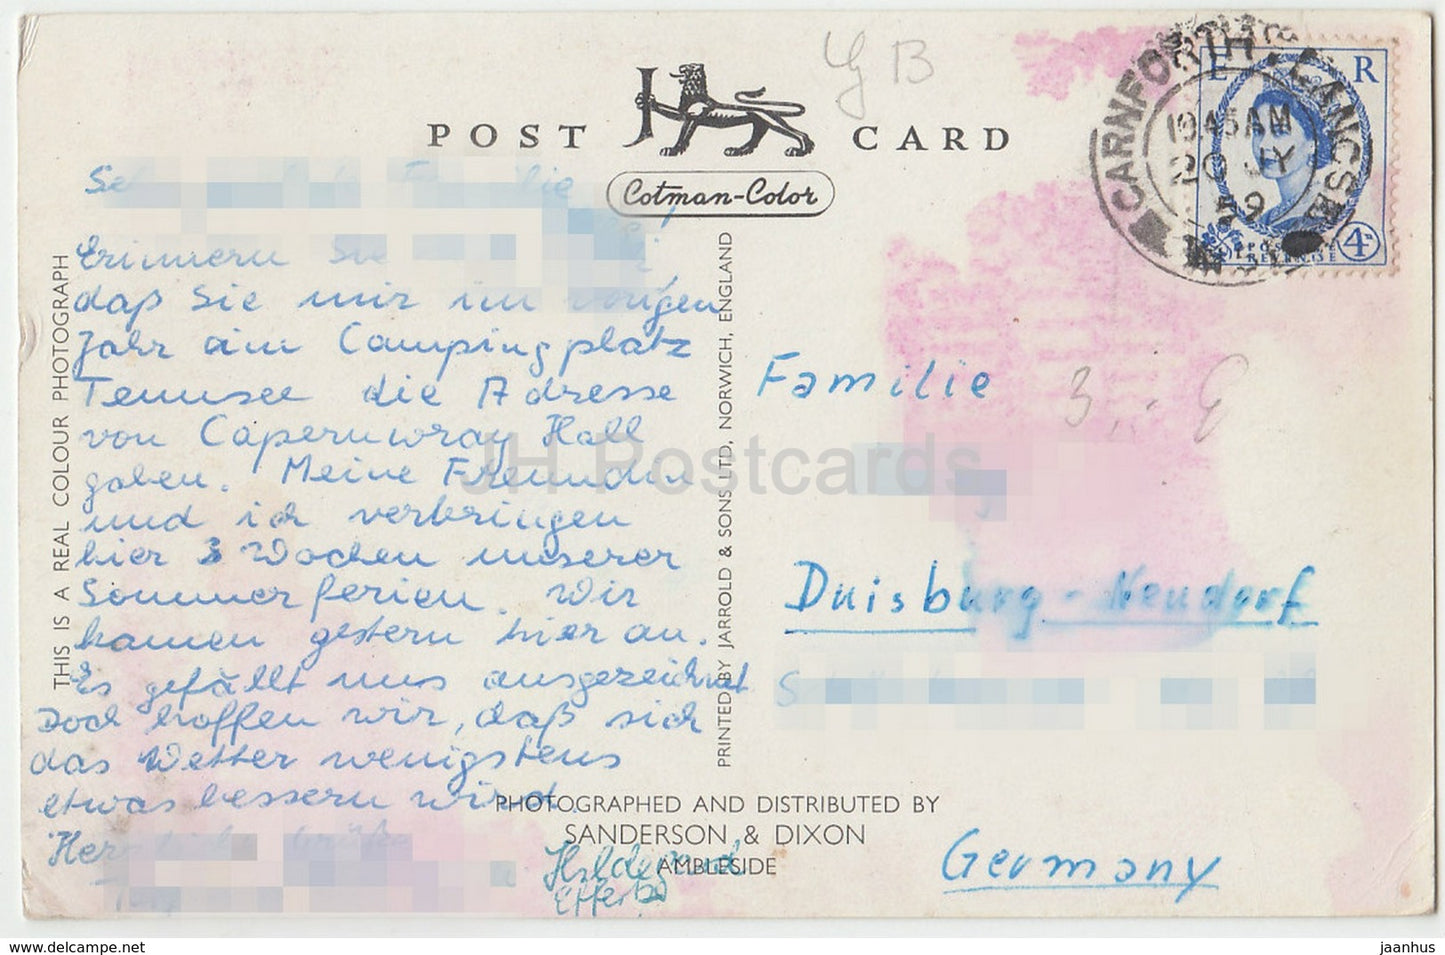 POST CARD
Cotman-Color
G B
CARNFORTH · LANCS
10.45 AM
20 JY
59
E R
4D
Erinnern Sie
daß Sie mir im vorigen
Jahr am Campingplatz
Tennsee die Adresse
von Capernwray Hall
gaben. Meine Freundin
und ich verbringen
hier 3 Wochen unserer
Sommerferien. Wir
kamen gestern hier an.
Es gefällt uns ausgezeichnet
Doch hoffen wir, daß sich
das Wetter wenigstens
etwas bessern wird.
Hildegund
THIS IS A REAL COLOUR PHOTOGRAPH
PRINTED BY JARROLD & SONS LTD, NORWICH, ENGLAND
Familie
Duisburg-Neudorf
Germany
PHOTOGRAPHED AND DISTRIBUTED BY
SANDERSON & DIXON
AMBLESIDE
JH Postcards
www.delcampe.net
jaanhus